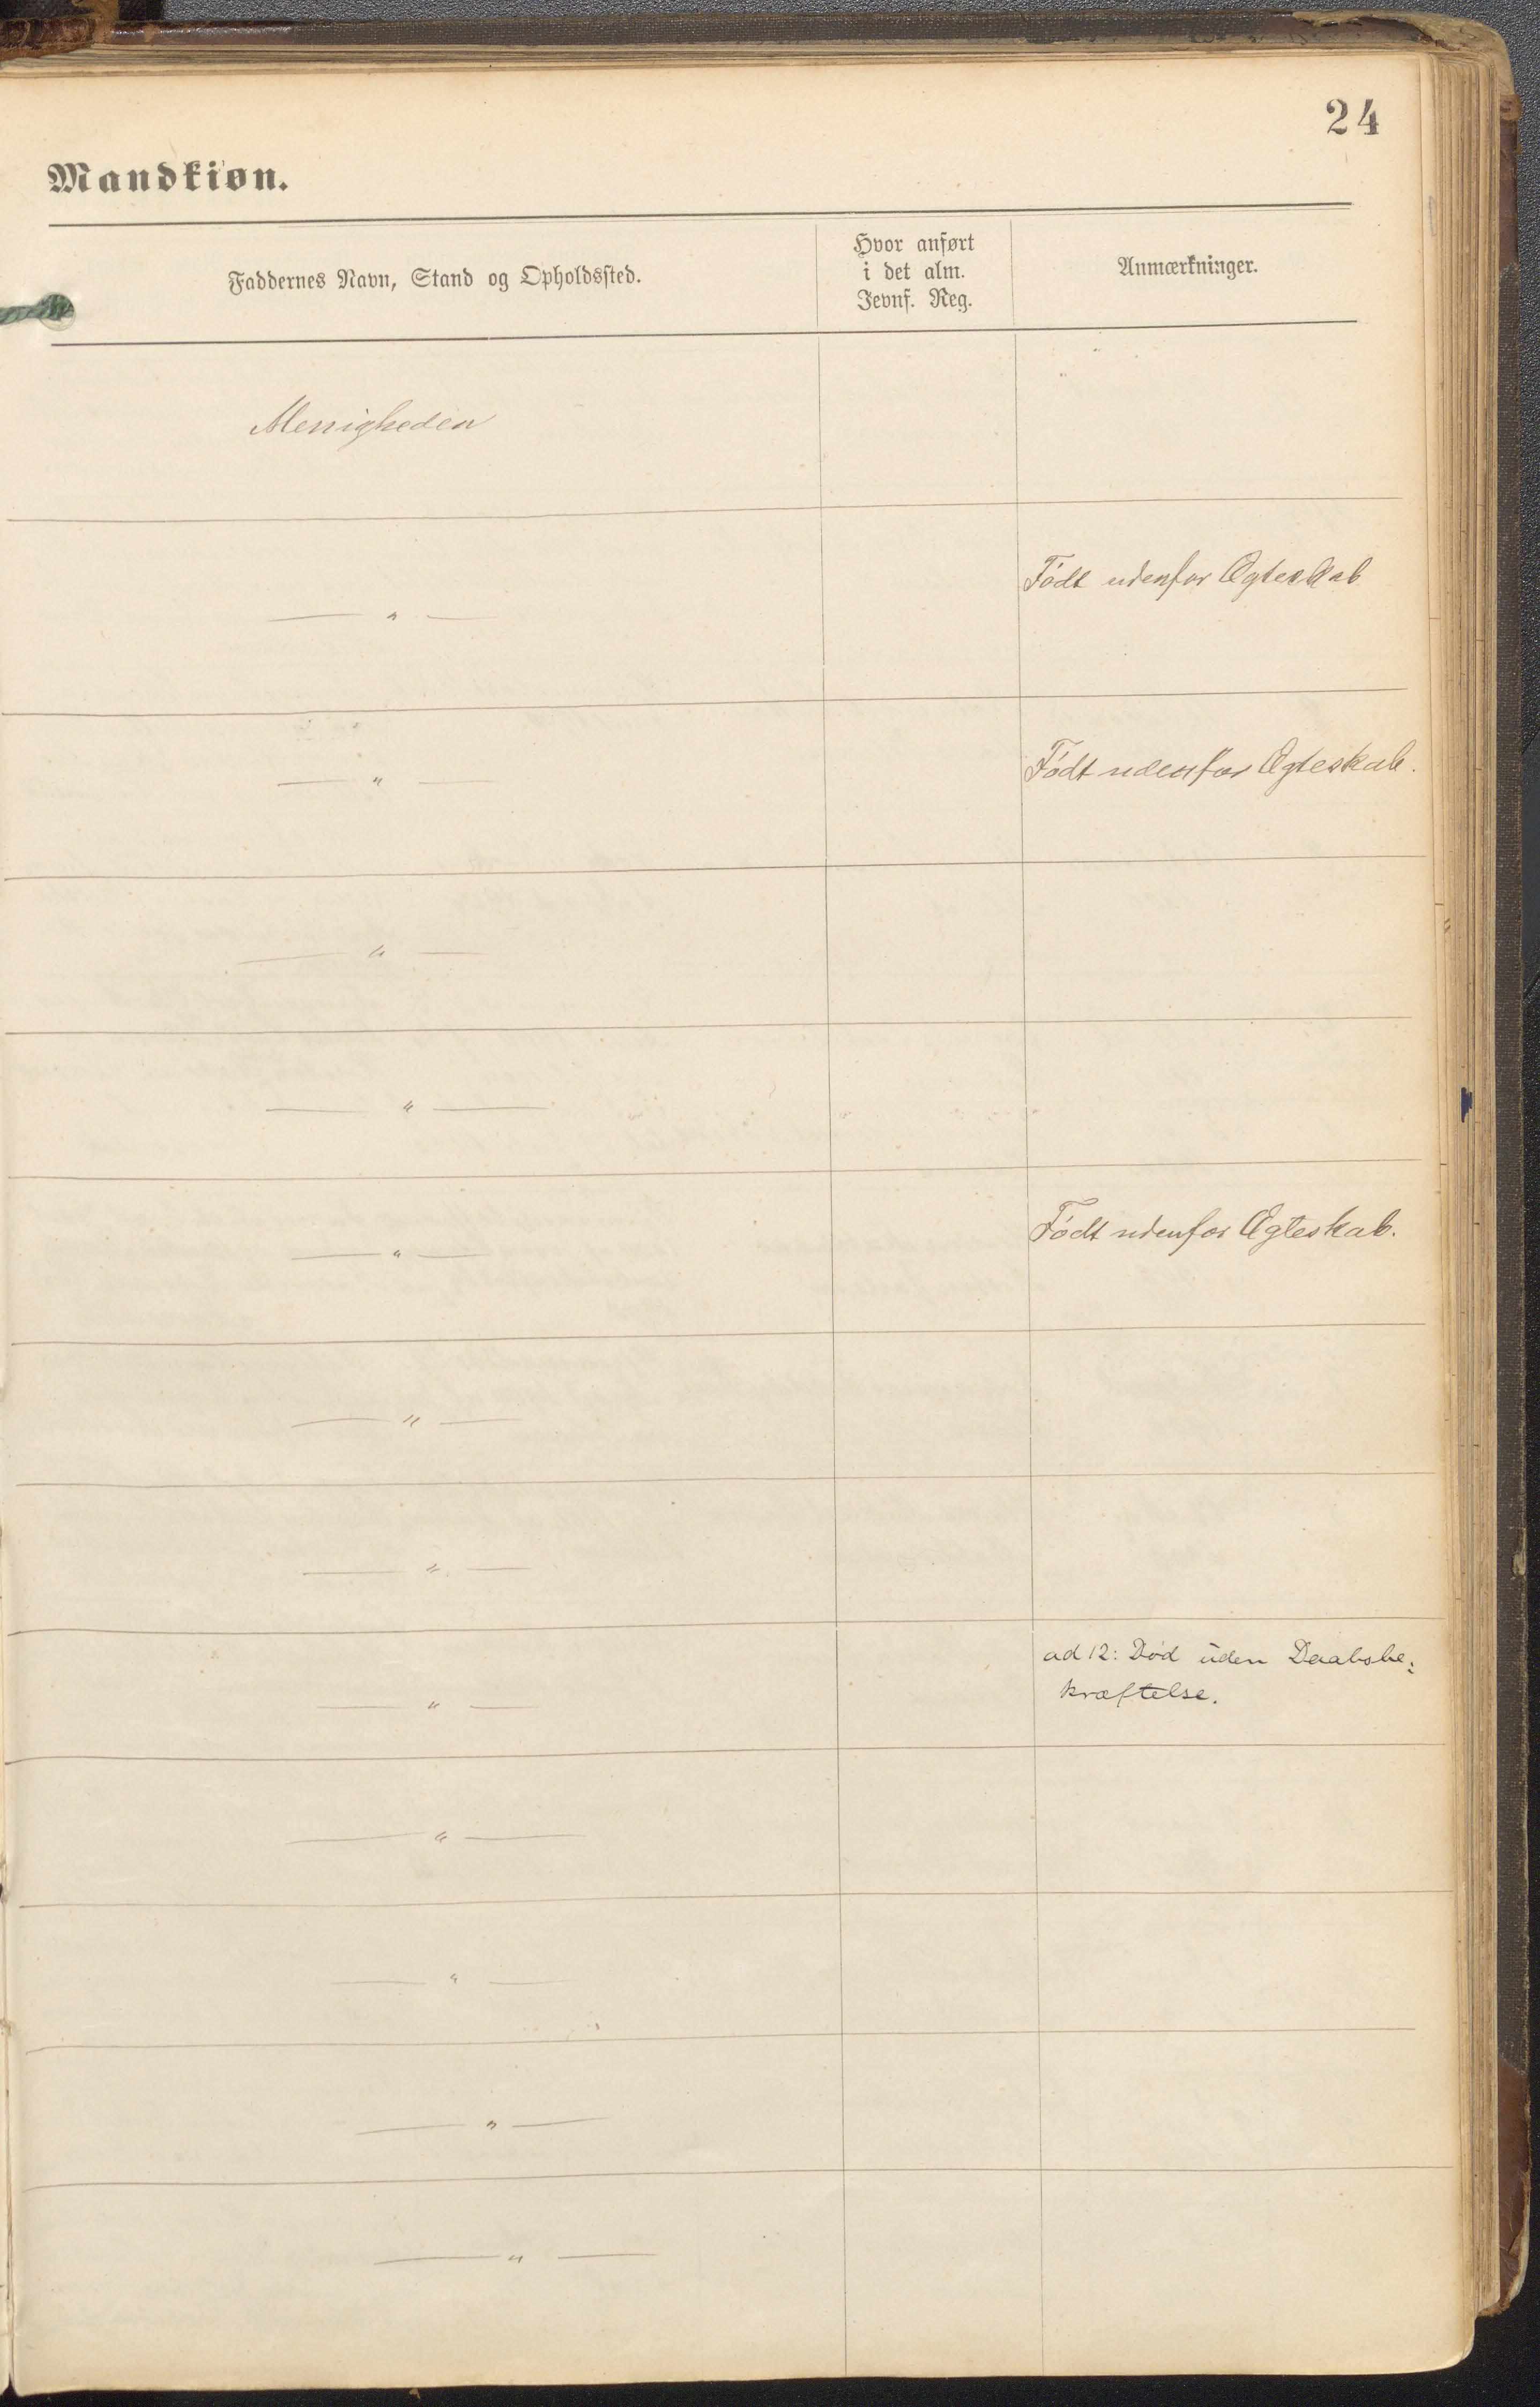 24
Mandkiøn.
Faddernes Navn, Stand og Opholdssted.
Hvor anført
i det alm.
Jevnf. Reg.
Anmærkninger.
Menigheden
— " —
Födt udenfor Ægteskab
— " —
Födt udenfor Ægteskab.
— " —
— " —
— " —
Födt udenfor Ægteskab.
— " —
— " —
— " —
ad 12: Död uden Daabsbe-
kræftelse.
— " —
— " —
— " —
— " —